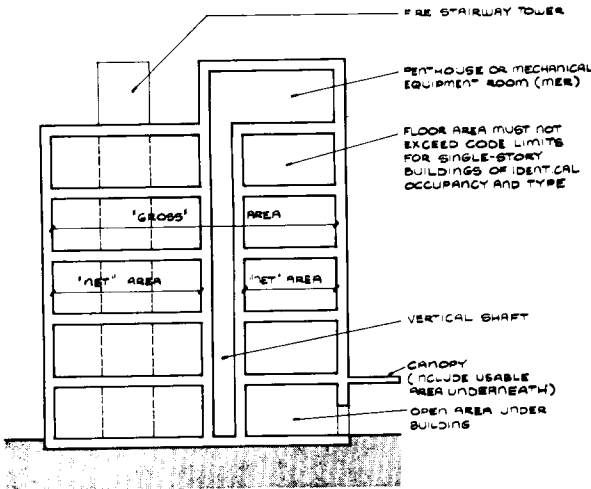 FIRE STAIRWAY TOWER
PENTHOUSE OR MECHANICAL
EQUIPMENT ROOM (MER)
FLOOR AREA MUST NOT
EXCEED CODE LIMITS
FOR SINGLE-STORY
BUILDINGS OF IDENTICAL
OCCUPANCY AND TYPE
"GROSS" AREA
"NET" AREA "NET" AREA
VERTICAL SHAFT
CANOPY
(INCLUDE USABLE
AREA UNDERNEATH)
OPEN AREA UNDER
BUILDING